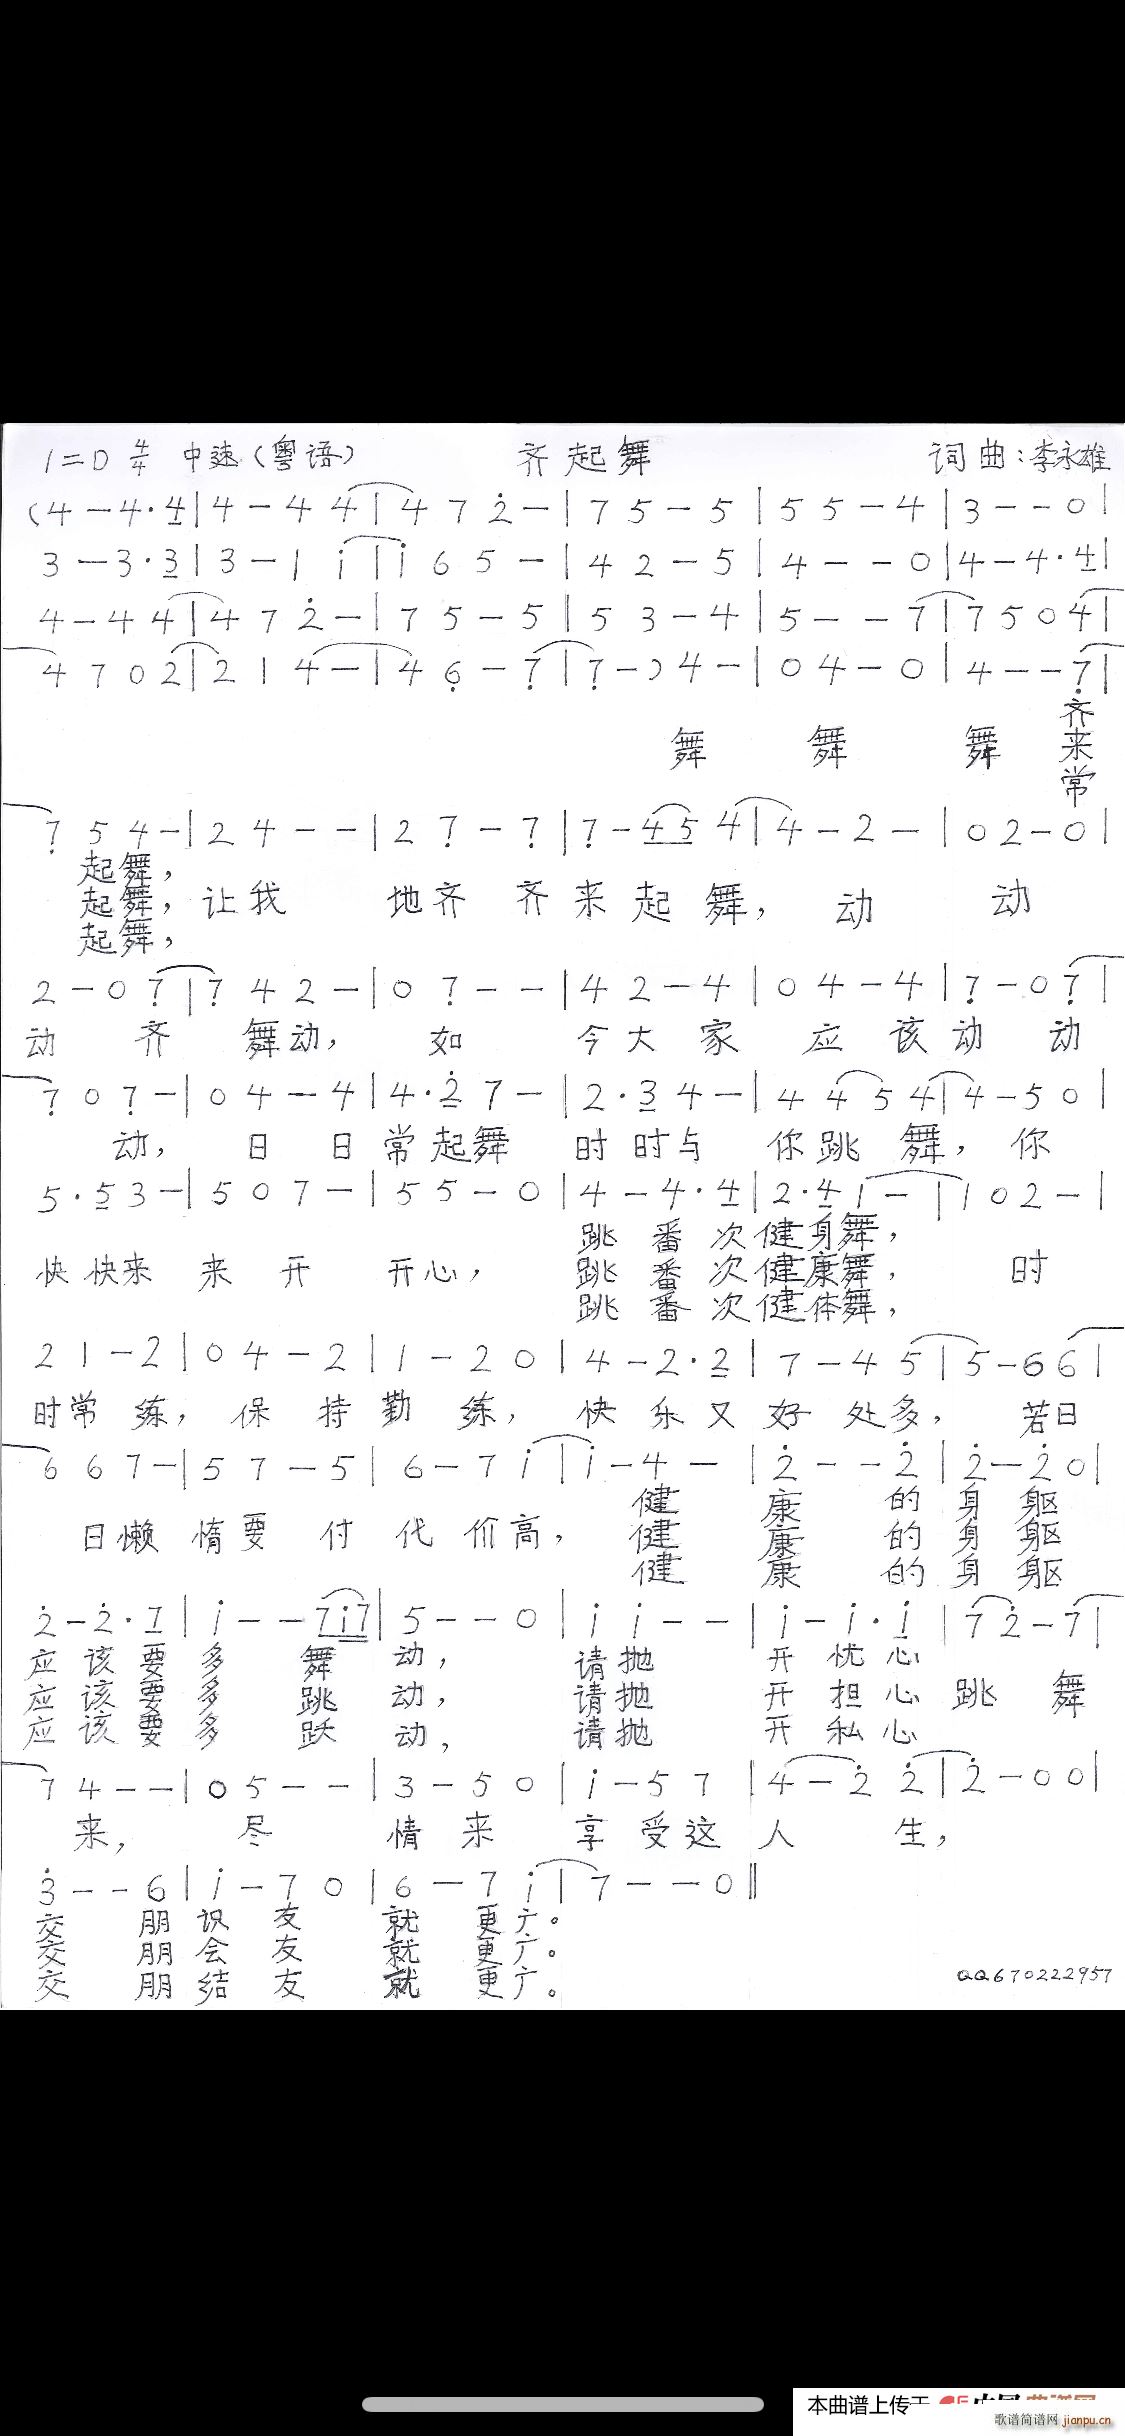 1=D 4/4 中速(粤语) 齐起舞 词曲:李永雄
(4 — 4·4 | 4 — 4 4 | 4 7 2 — | 7 5 — 5 | 5 5 — 4 | 3 — — 0 |
3 — 3·3 | 3 — 1 i | i 6 5 — | 4 2 — 5 | 4 — — 0 | 4 — 4·4 |
4 — 4 4 | 4 7 2 — | 7 5 — 5 | 5 3 — 4 | 5 — — 7 | 7 5 0 4 |
4 7 0 2 | 2 1 4 — | 4 6 — 7 | 7 — ) 4 — | 0 4 — 0 | 4 — — 7 |
齐
舞 舞 舞 来
常
7 5 4 — | 2 4 — — | 2 7 — 7 | 7 — 4 5 4 | 4 — 2 — | 0 2 — 0 |
起舞,
起舞, 让我 地齐 齐来起舞, 动 动
起舞,
2 — 0 7 | 7 4 2 — | 0 7 — — | 4 2 — 4 | 0 4 — 4 | 7 — 0 7 |
动 齐 舞动, 如 今大 家 应 该动 动
7 0 7 — | 0 4 — 4 | 4·2 7 — | 2·3 4 — | 4 4 5 4 | 4 — 5 0 |
动, 日 日常起舞 时时与 你跳舞, 你
5·5 3 — | 5 0 7 — | 5 5 — 0 | 4 — 4·4 | 2·4 1 — | 1 0 2 — |
跳番次健身舞,
快快来 来 开 开心, 跳番次健康舞, 时
跳番次健体舞,
2 1 — 2 | 0 4 — 2 | 1 — 2 0 | 4 — 2·2 | 7 — 4 5 | 5 — 6 6 |
时常 练, 保 持勤 练, 快乐又好 处多, 若日
6 6 7 — | 5 7 — 5 | 6 — 7 i | i — 4 — | 2 — — 2 | 2 — 2 0 |
健 康 的身躯
日懒 惰要 付 代 价高, 健 康 的身躯
健 康 的身躯
2 — 2·1 | i — — 7i7 | 5 — — 0 | i i — — | i — i·i | 7 2 — 7 |
应该要多 舞 动, 请抛 开忧心
应该要多 跳 动, 请抛 开担心 跳 舞
应该要多 跃 动, 请抛 开私心
7 4 — — | 0 5 — — | 3 — 5 0 | i — 5 7 | 4 — 2 2 | 2 — 0 0 |
来, 尽 情来 享受这人 生,
3 — — 6 | i — 7 0 | 6 — 7 i | 7 — — 0 ‖
交 朋识友 就 更广。
交 朋会友 就 更广。
交 朋结友 就 更广。
QQ670222957
本曲谱上传于
歌谱简谱网 jianpu.cn